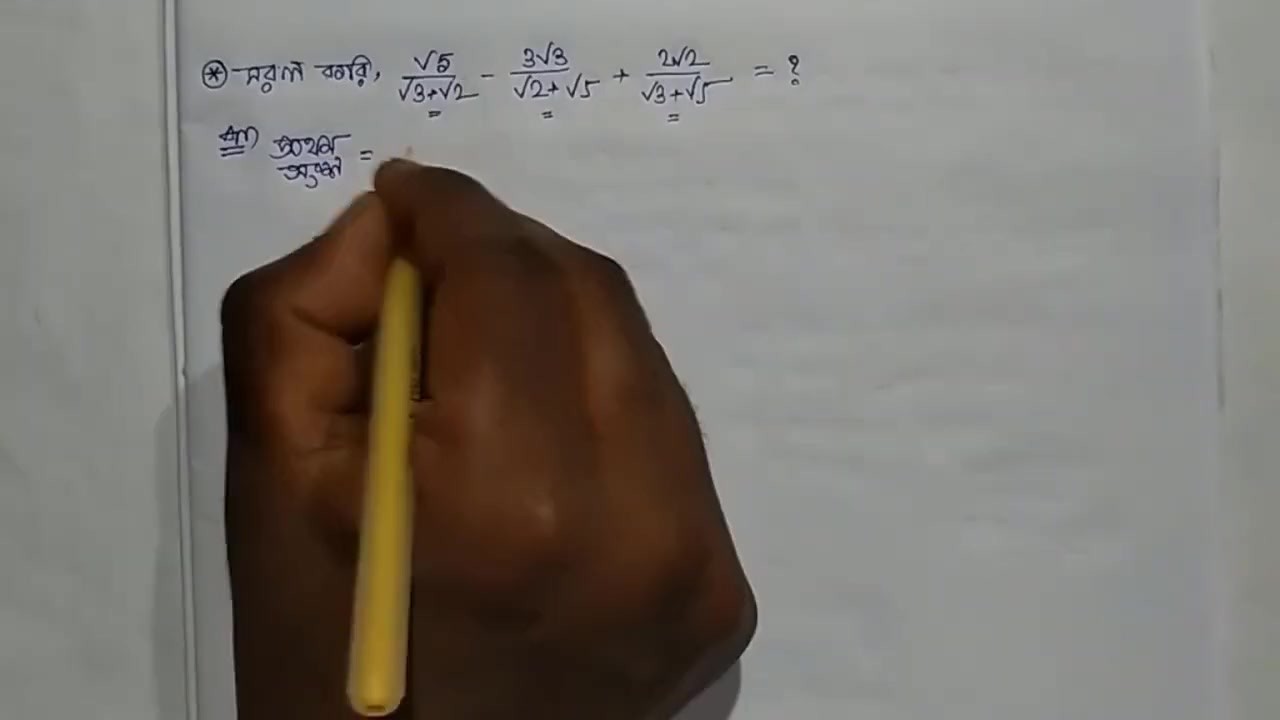 ⊛ সরল করি, √5/(√3+√2) - 3√3/(√2+√5) + 2√2/(√3+√5) = ?
Ans) প্রথম অংশ =